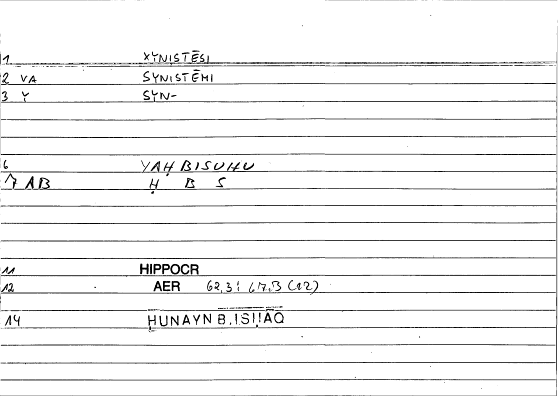 1 XYNISTĒSI
2 VA SYNISTĒMI
3 Y SYN-
6 YAḤBISUHU
7 AB Ḥ B S
11 HIPPOCR
12 AER 62,3
14 ḤUNAYN B. ISḤĀQ